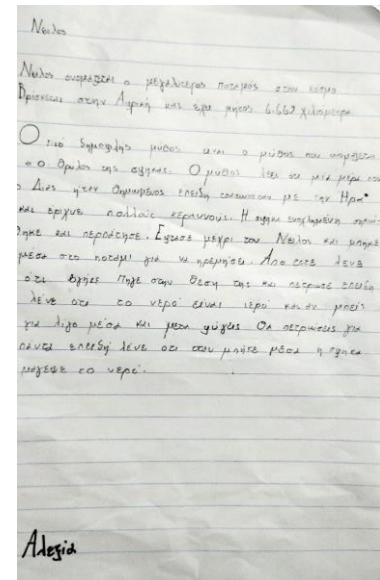 Νείλος
Νείλος ονομάζεται ο μεγαλύτερος ποταμός στον κόσμο
Βρίσκεται στην Αφρική και έχει μήκος 6.662 χιλιόμετρα
Ο πιο δημοφιλής μύθος είναι ο μύθος που ονομάζεται
ο θρύλος της σφήγκας. Ο μύθος λέει ότι μία μέρα που
ο Δίας ήταν θυμωμένος επειδή με την Ήρα
και έριχνε πολλούς κεραυνούς. Η
και περπάτησε. Έφτασε μέχρι τον Νείλος και μπήκε
μέσα στο ποτάμι για να ηρεμήσει. Από τότε λένε
ότι βγήκε πήγε στην θέση της και πέτρωσε επειδή
λένε ότι το νερό είναι ιερό και αν μπεις
για λίγο μέσα και μετα φύγεις θα πετρώσεις για
πάντα επειδή λένε ότι όταν μπήκε μέσα η
μάγεψε το νερό.
Αλεξία